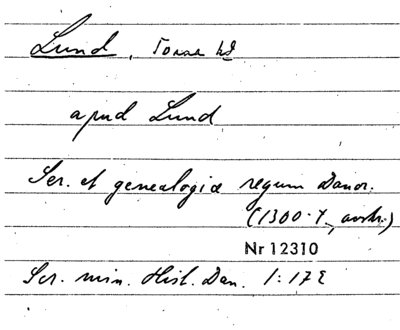 Lund, Torna hd
apud Lund
Ser. et genealogiæ regum Danor.
(1300-t., avskr.)
Nr 12310
Scr. min. Hist. Dan. 1:172